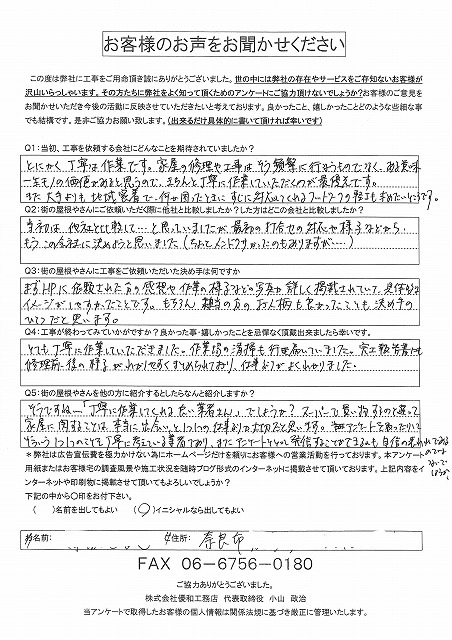 お客様のお声をお聞かせください
この度は弊社に工事をご用命頂き誠にありがとうございました。世の中には弊社の存在やサービスをご存知ないお客様が
沢山いらっしゃいます。その方たちに弊社をよく知って頂くためのアンケートにご協力頂けないでしょうか?お客様のご意見を
お聞かせいただき今後の活動に反映させていただきたいと考えております。良かったこと、嬉しかったことどのような些細な事
でも結構です。是非ご協力お願い致します。(出来るだけ具体的に書いて頂ければ幸いです)
Q1:当初、工事を依頼する会社にどんなことを期待されていましたか?
とにかく丁寧な作業です。家屋の修理や工事はそう頻繁に行なうものでなく、ある意味
一生モノの価値があると思うので、きちんと丁寧に作業していただくのが最優先です。
また大手よりも地域密着で、何か困ったときにすぐに対応してくれるフットワークの軽さも求めていたようです。
Q2:街の屋根やさんにご依頼いただく際に他社と比較しましたか?した方はどこの会社と比較しましたか?
当初は他社と比較して…と思っていましたが、最初の打合せの対応や様子などから、
もうこの会社に決めようと思いました(ちょっとメンドクサかったのもありますが…)
Q3:街の屋根やさんに工事をご依頼いただいた決め手は何ですか
まずHPに依頼された方の感想や作業の様子などの写真が詳しく掲載されていて、具体的な
イメージがしやすかったことです。もちろん、担当の方のお人柄も良かったことも決め手の
ひとつだと思います。
Q4:工事が終わってみていかがですか?良かった事・嬉しかったことを忌憚なく頂戴出来ましたら幸いです。
とても丁寧に作業していただきました。作業後の清掃も行き届いていました。完工報告書にも
修理前・後の様子がわかりやすくまとめられており、仕事ぶりがよくわかりました。
Q5:街の屋根やさんを他の方に紹介するとしたらなんと紹介しますか?
そうですね…「丁寧に作業してくれる良い業者さん」でしょうか?スーパーで買い物するのと違って
家屋に関することは、本当に出会いと1つ1つの仕事ぶりが大切だと思います。
*弊社は広告宣伝費を極力かけない為にホームページだけを頼りにお客様への営業活動を行っております。本アンケート
用紙またはお客様宅の調査風景や施工状況を随時ブログ形式のインターネットに掲載させて頂いております。上記内容をイ
ンターネットや印刷物に掲載させて頂いてもよろしいでしょうか?
下記の中から〇印をお付下さい。
( )名前を出してもよい (〇)イニシャルなら出してもよい
お名前: ご住所: 奈良市
FAX 06-6756-0180
ご協力ありがとうございました。
株式会社優和工務店 代表取締役 小山 政治
当アンケートで取得したお客様の個人情報は関係法規に基づき厳正に管理いたします。